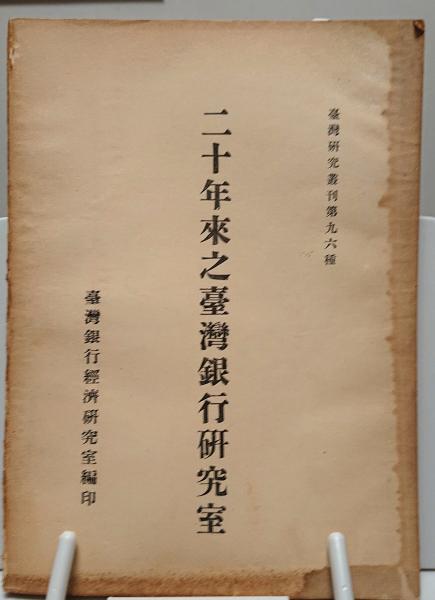 臺灣研究叢刊第九六種
二十年來之臺灣銀行研究室
臺灣銀行經濟研究室編印